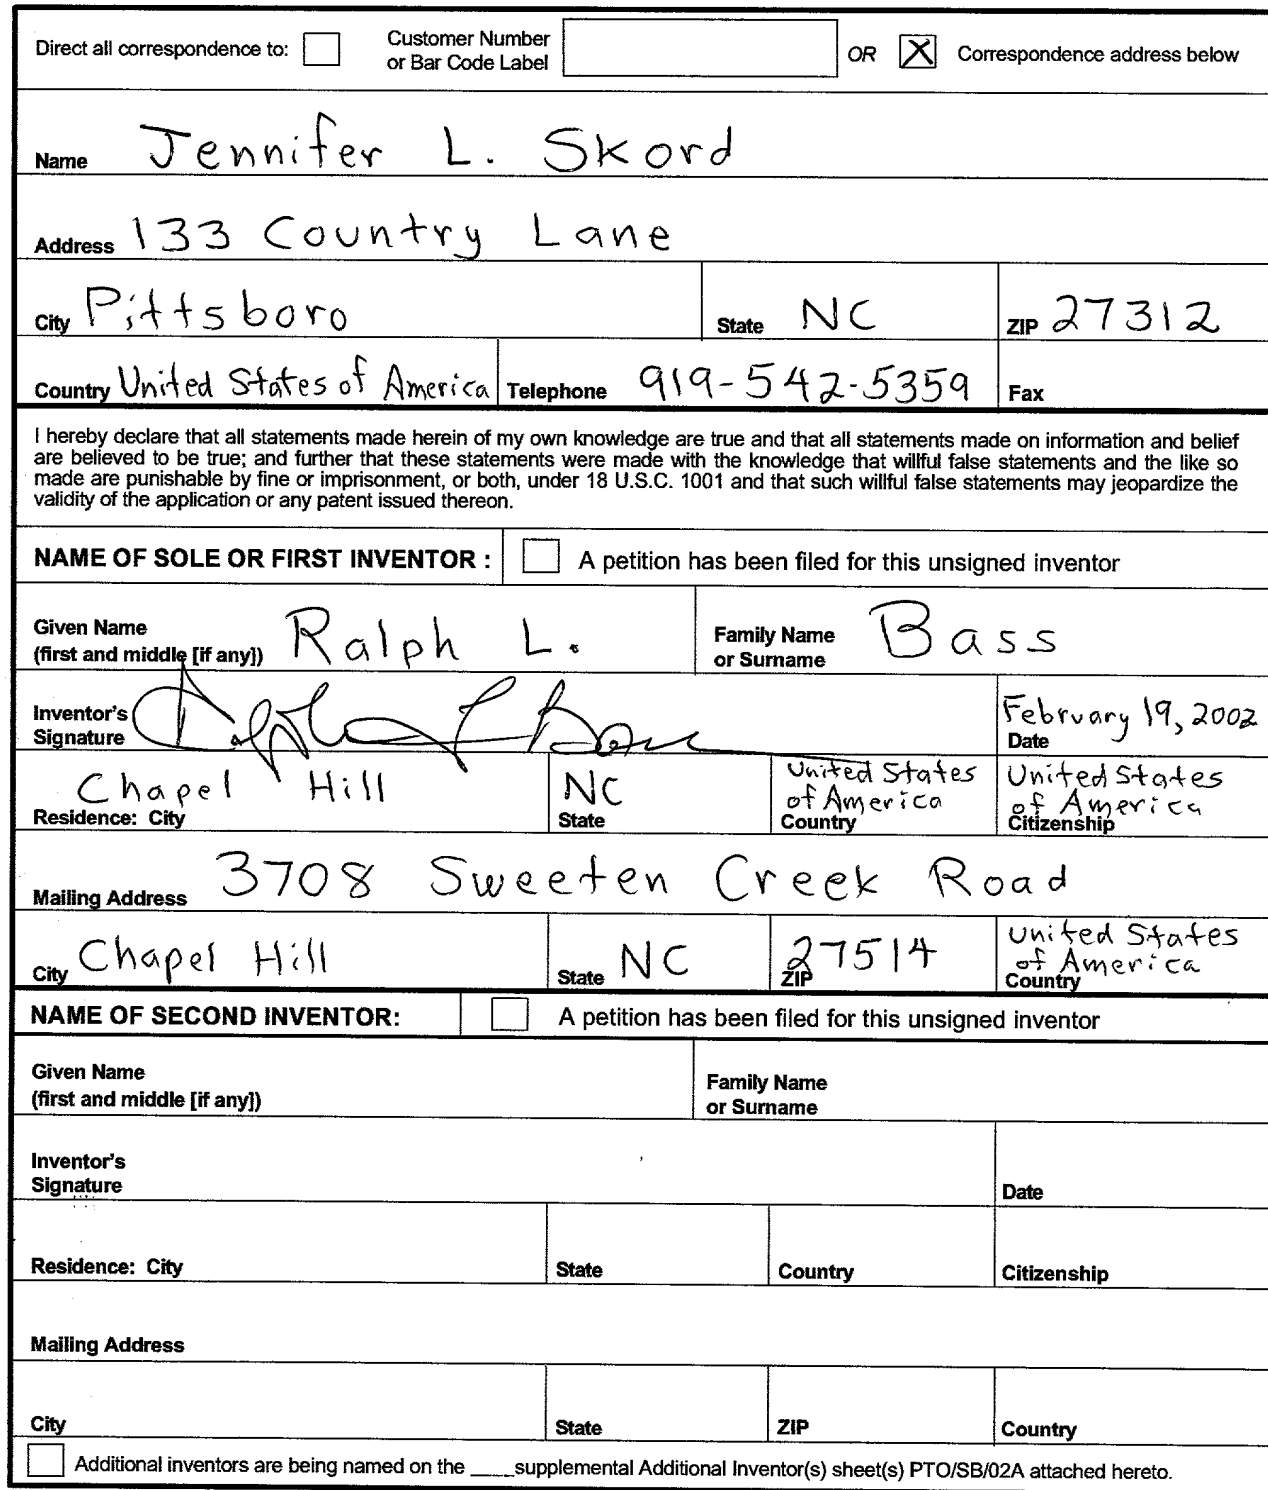 Direct all correspondence to: Customer Number or Bar Code Label OR X Correspondence address below
Name Jennifer L. Skord
Address 133 Country Lane
City Pittsboro State NC ZIP 27312
Country United States of America Telephone 919-542-5359 Fax
I hereby declare that all statements made herein of my own knowledge are true and that all statements made on information and belief
are believed to be true; and further that these statements were made with the knowledge that willful false statements and the like so
made are punishable by fine or imprisonment, or both, under 18 U.S.C. 1001 and that such willful false statements may jeopardize the
validity of the application or any patent issued thereon.
NAME OF SOLE OR FIRST INVENTOR : A petition has been filed for this unsigned inventor
Given Name (first and middle [if any]) Ralph L. Family Name or Surname Bass
Inventor's Signature February 19, 2002 Date
Chapel Hill Residence: City NC State United States of America Country United States of America Citizenship
Mailing Address 3708 Sweeten Creek Road
City Chapel Hill State NC 27514 ZIP United States of America Country
NAME OF SECOND INVENTOR: A petition has been filed for this unsigned inventor
Given Name (first and middle [if any]) Family Name or Surname
Inventor's Signature Date
Residence: City State Country Citizenship
Mailing Address
City State ZIP Country
Additional inventors are being named on the ____supplemental Additional Inventor(s) sheet(s) PTO/SB/02A attached hereto.